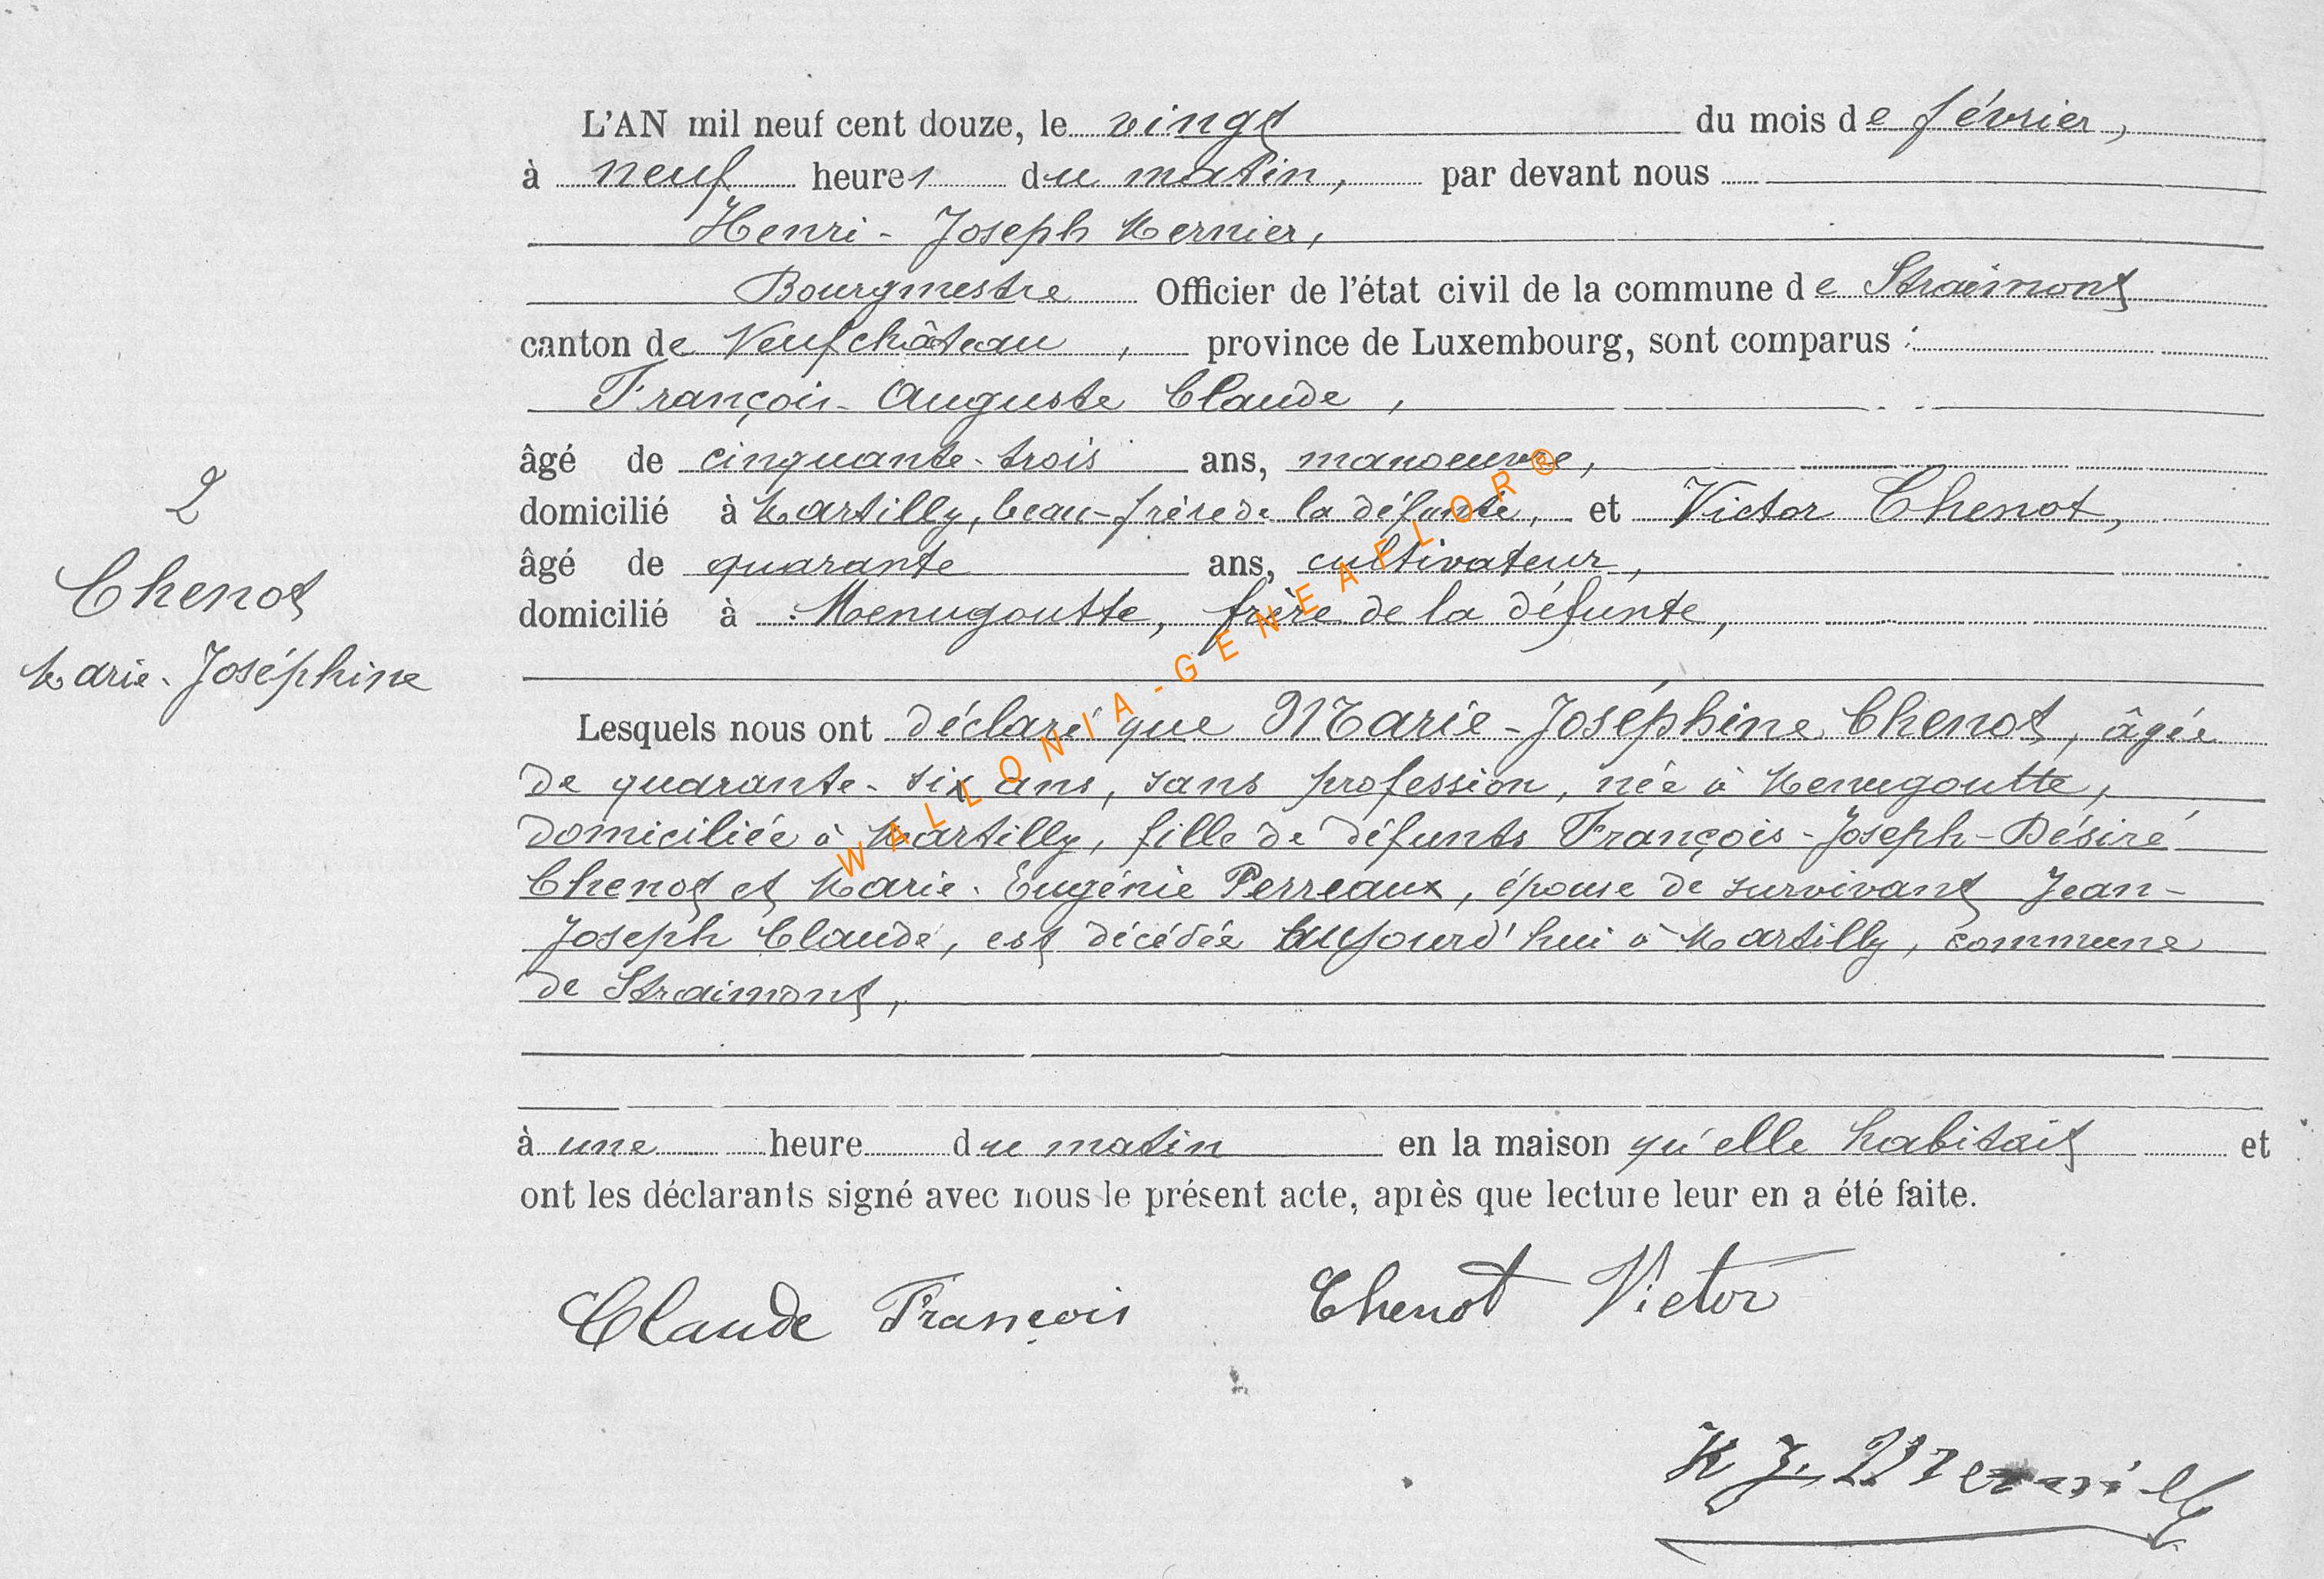 L'AN mil neuf cent douze, le vingt du mois de février,
à neuf heures du matin, par devant nous
Henri-Joseph Mernier,
Bourgmestre Officier de l'état civil de la commune de Straimont
canton de Neufchâteau, province de Luxembourg, sont comparus :
François-Auguste Claude,
âgé de cinquante-trois ans, manoeuvre,
domicilié à Martilly, beau-frère de la défunte, et Victor Chenot,
âgé de quarante ans, cultivateur,
domicilié à Menugoutte, frère de la défunte,
2
Chenot
Marie-Joséphine
Lesquels nous ont déclaré que Marie-Joséphine Chenot, âgée
de quarante-six ans, sans profession, née à Menugoutte,
domiciliée à Martilly, fille de défunts François-Joseph-Désiré
Chenot et Marie-Eugénie Perreaux, épouse de survivant Jean-
Joseph Claude, est décédée aujourd'hui à Martilly, commune
de Straimont,
à une heure du matin en la maison qu'elle habitait et
ont les déclarants signé avec nous le présent acte, après que lecture leur en a été faite.
Claude François
Chenot Victor
H J. Mernier
WALLONIA-GENEAFLOR®